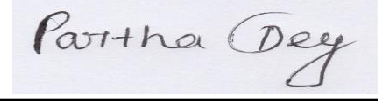 Partha Dey